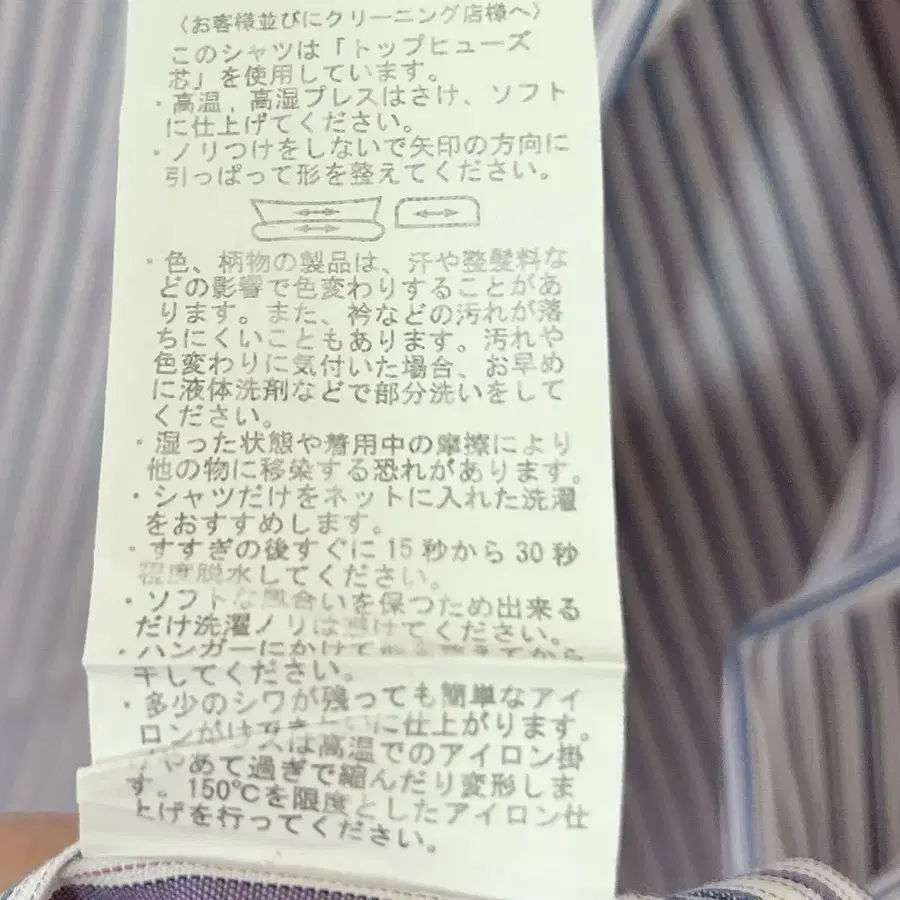 〈お客様並びにクリーニング店様へ〉
このシャツは「トップヒューズ
芯」を使用しています。
・高温，高湿プレスはさけ、ソフト
に仕上げてください。
・ノリつけをしないで矢印の方向に
引っぱって形を整えてください。
・色、柄物の製品は、汗や整髪料な
どの影響で色変わりすることがあ
ります。また、衿などの汚れが落
ちにくいこともあります。汚れや
色変わりに気付いた場合、お早め
に液体洗剤などで部分洗いをして
ください。
・湿った状態や着用中の摩擦により
他の物に移染する恐れがあります。
・シャツだけをネットに入れた洗濯
をおすすめします。
・すすぎの後すぐに15秒から30秒
程度脱水してください。
・ソフトな風合いを保つため出来る
だけ洗濯ノリは避けてください。
・ハンガーにかけて えてから
干してください。
・多少のシワが残っても簡単なアイ
ロンがけできれいに仕上がります。
は高温でのアイロン掛
けやあて過ぎで縮んだり変形しま
す。150℃を限度としたアイロン仕
上げを行ってください。